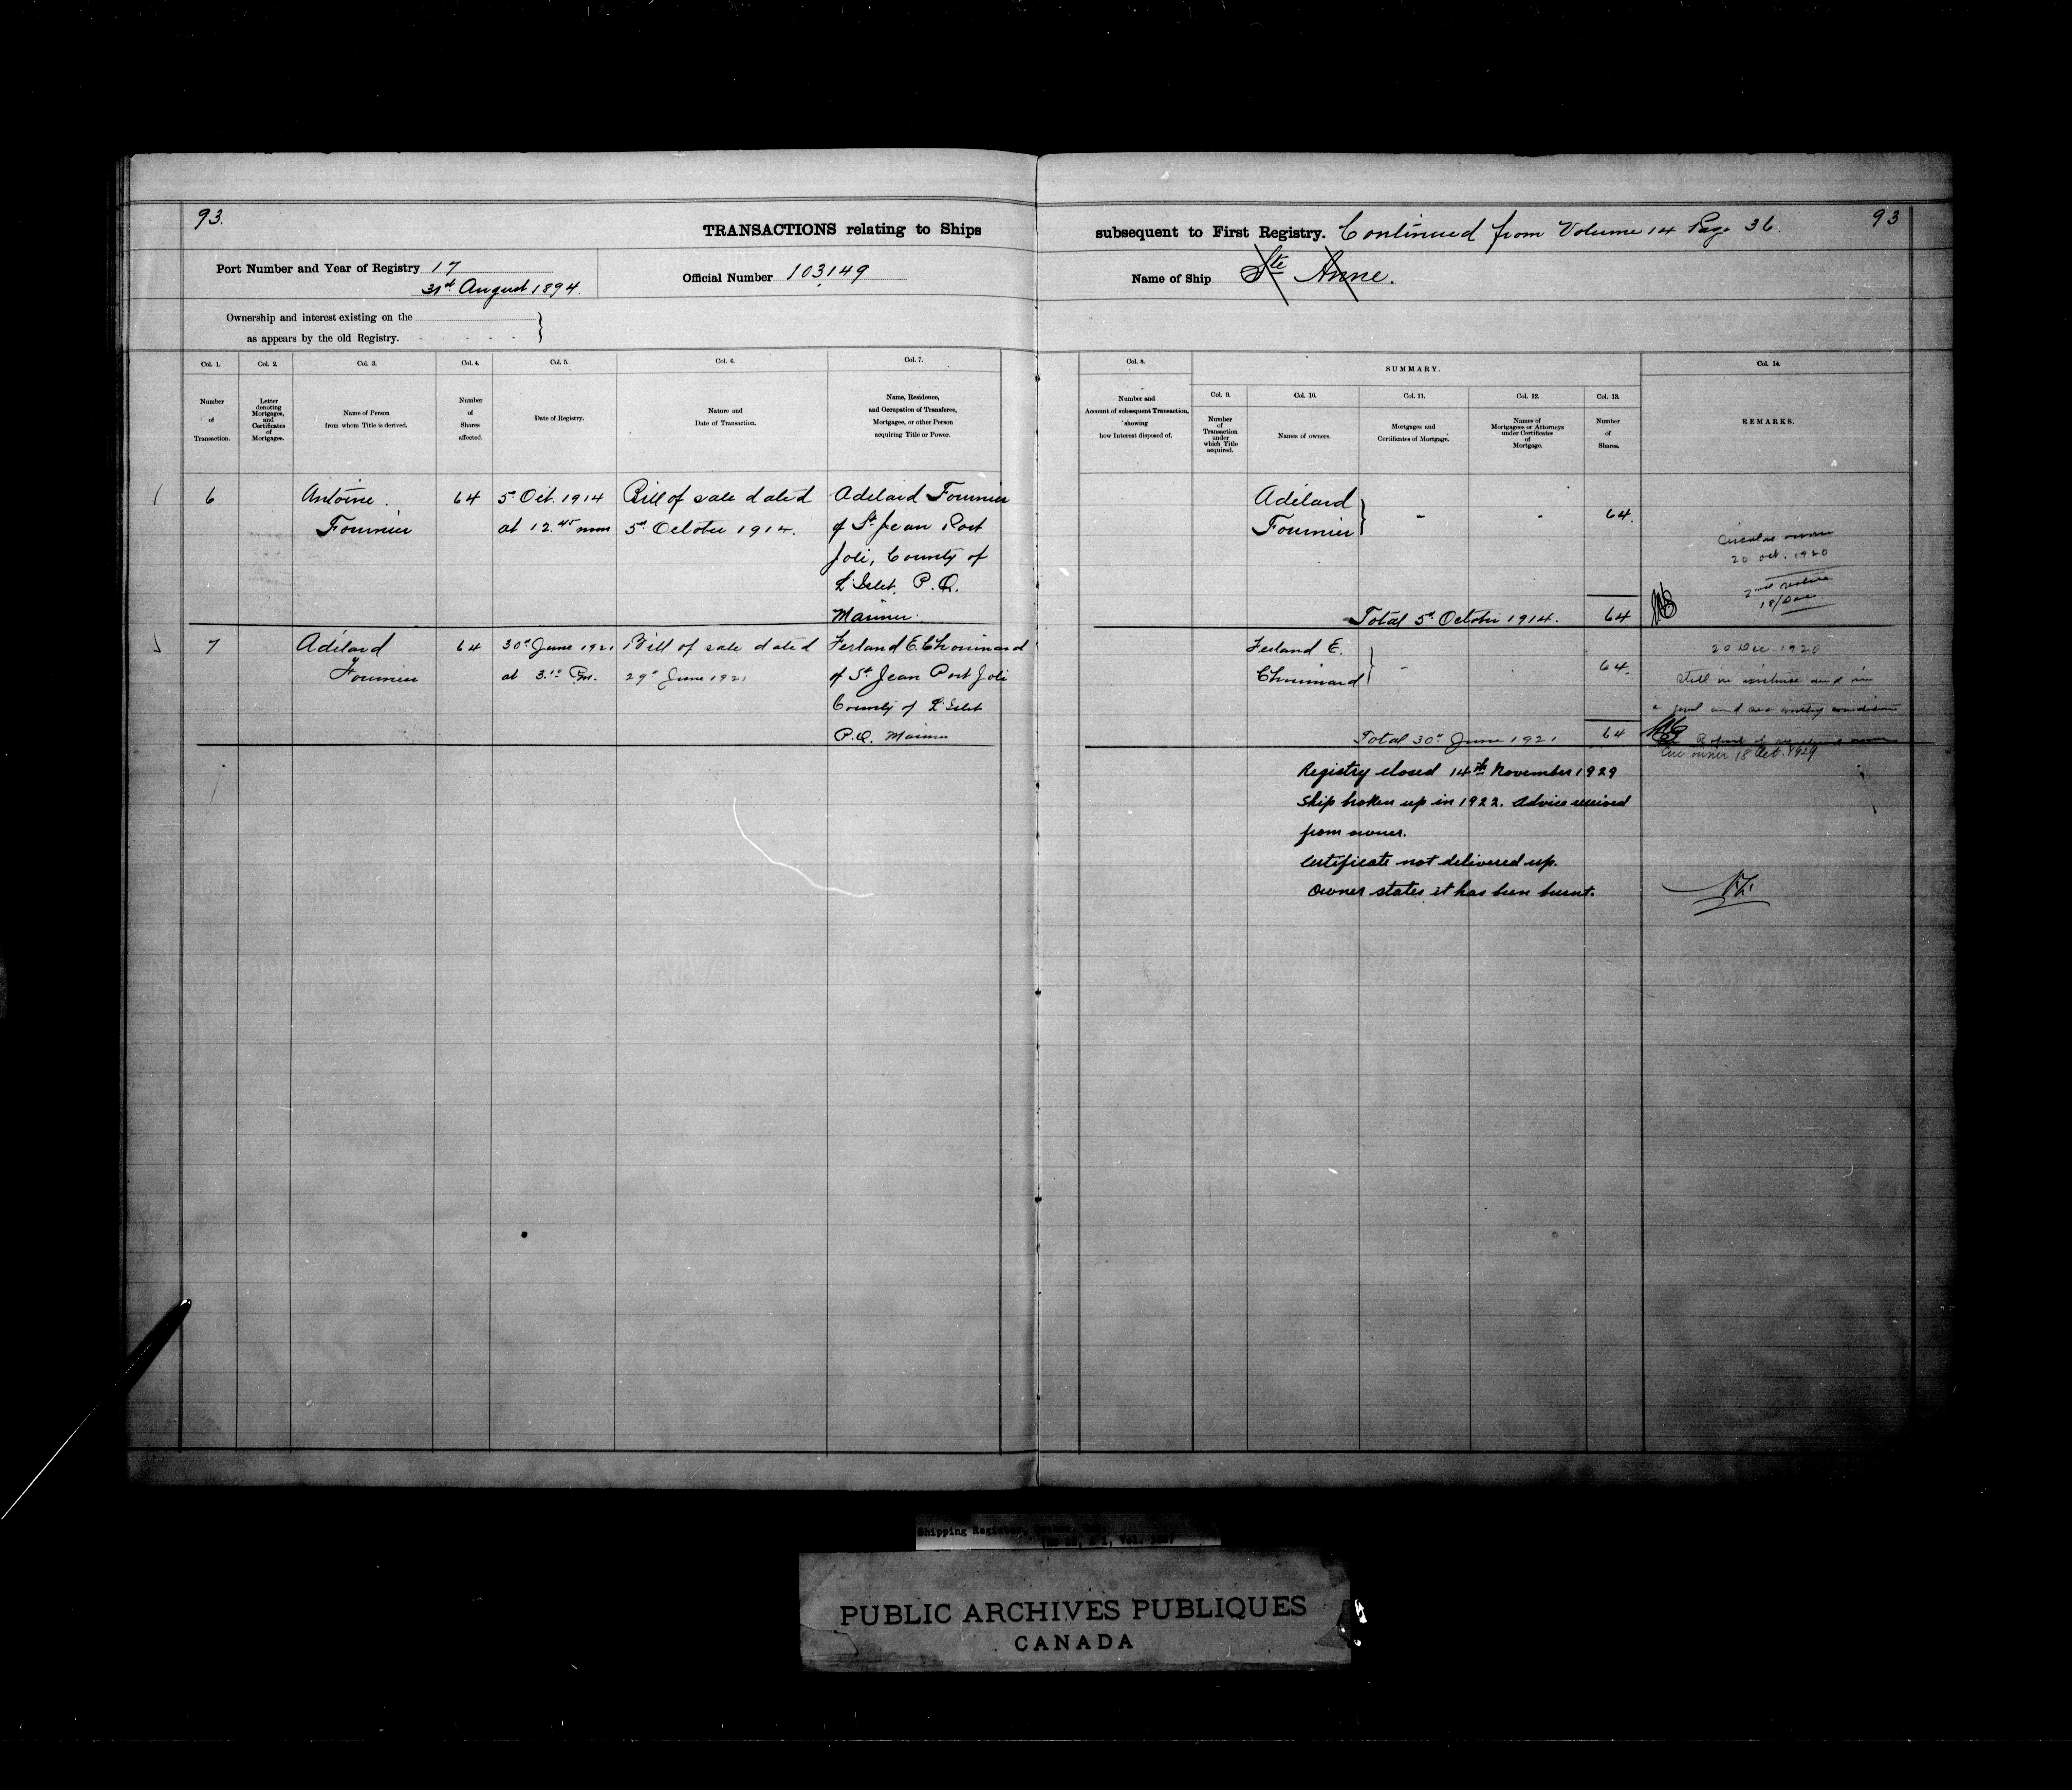 93.
TRANSACTIONS relating to Ships
subsequent to First Registry. Continued from Volume 14 Page 36.
93
Port Number and Year of Registry 17
31st August 1894.
Official Number 103,149
Name of Ship Ste Anne.
Ownership and interest existing on the
as appears by the old Registry.
Col. 1.
Number
of
Transaction.
Col. 2.
Letter
denoting
Mortgages,
and
Certificates
of
Mortgages.
Col. 3.
Name of Person
from whom Title is derived.
Col. 4.
Number
of
Shares
affected.
Col. 5.
Date of Registry.
Col. 6.
Nature and
Date of Transaction.
Col. 7.
Name, Residence,
and Occupation of Transferee,
Mortgagee, or other Person
acquiring Title or Power.
Col. 8.
Number and
Account of subsequent Transaction,
showing
how Interest disposed of.
SUMMARY.
Col. 9.
Number
of
Transaction
under
which Title
acquired.
Col. 10.
Names of owners.
Col. 11.
Mortgages and
Certificates of Mortgage.
Col. 12.
Names of
Mortgagees or Attorneys
under Certificates
of
Mortgage.
Col. 13.
Number
of
Shares.
Col. 14.
REMARKS.
6
Antoine
Fournier
64
5th Oct. 1914
at 12.45
Bill of sale dated
5th October 1914.
Adelard Fournier
of St Jean Port
Joli, County of
L'Islet, P.Q.
Mariner.
Adélard
Fournier
64.
Total 5th October 1914. 64
Circular owner
20 oct. 1920
2nd notice
18/Dec.
7
Adélard
Fournier
64
30th June 1921
at 3.10 P.m.
Bill of sale dated
29th June 1921
Ferland E. Chouinard
of St Jean Port Joli
County of L'Islet
P.Q. Mariner
Ferland E.
Chouinard
64.
Total 30th June 1921 64
20 Dec 1920
Still in existence and in
a good and sea worthy condition
owner 18 Oct. 1929
Registry closed 14th November 1929
Ship broken up in 1922. Advice received
from owner.
Certificate not delivered up.
Owner states it has been burnt.
Shipping Register,
PUBLIC ARCHIVES PUBLIQUES
CANADA